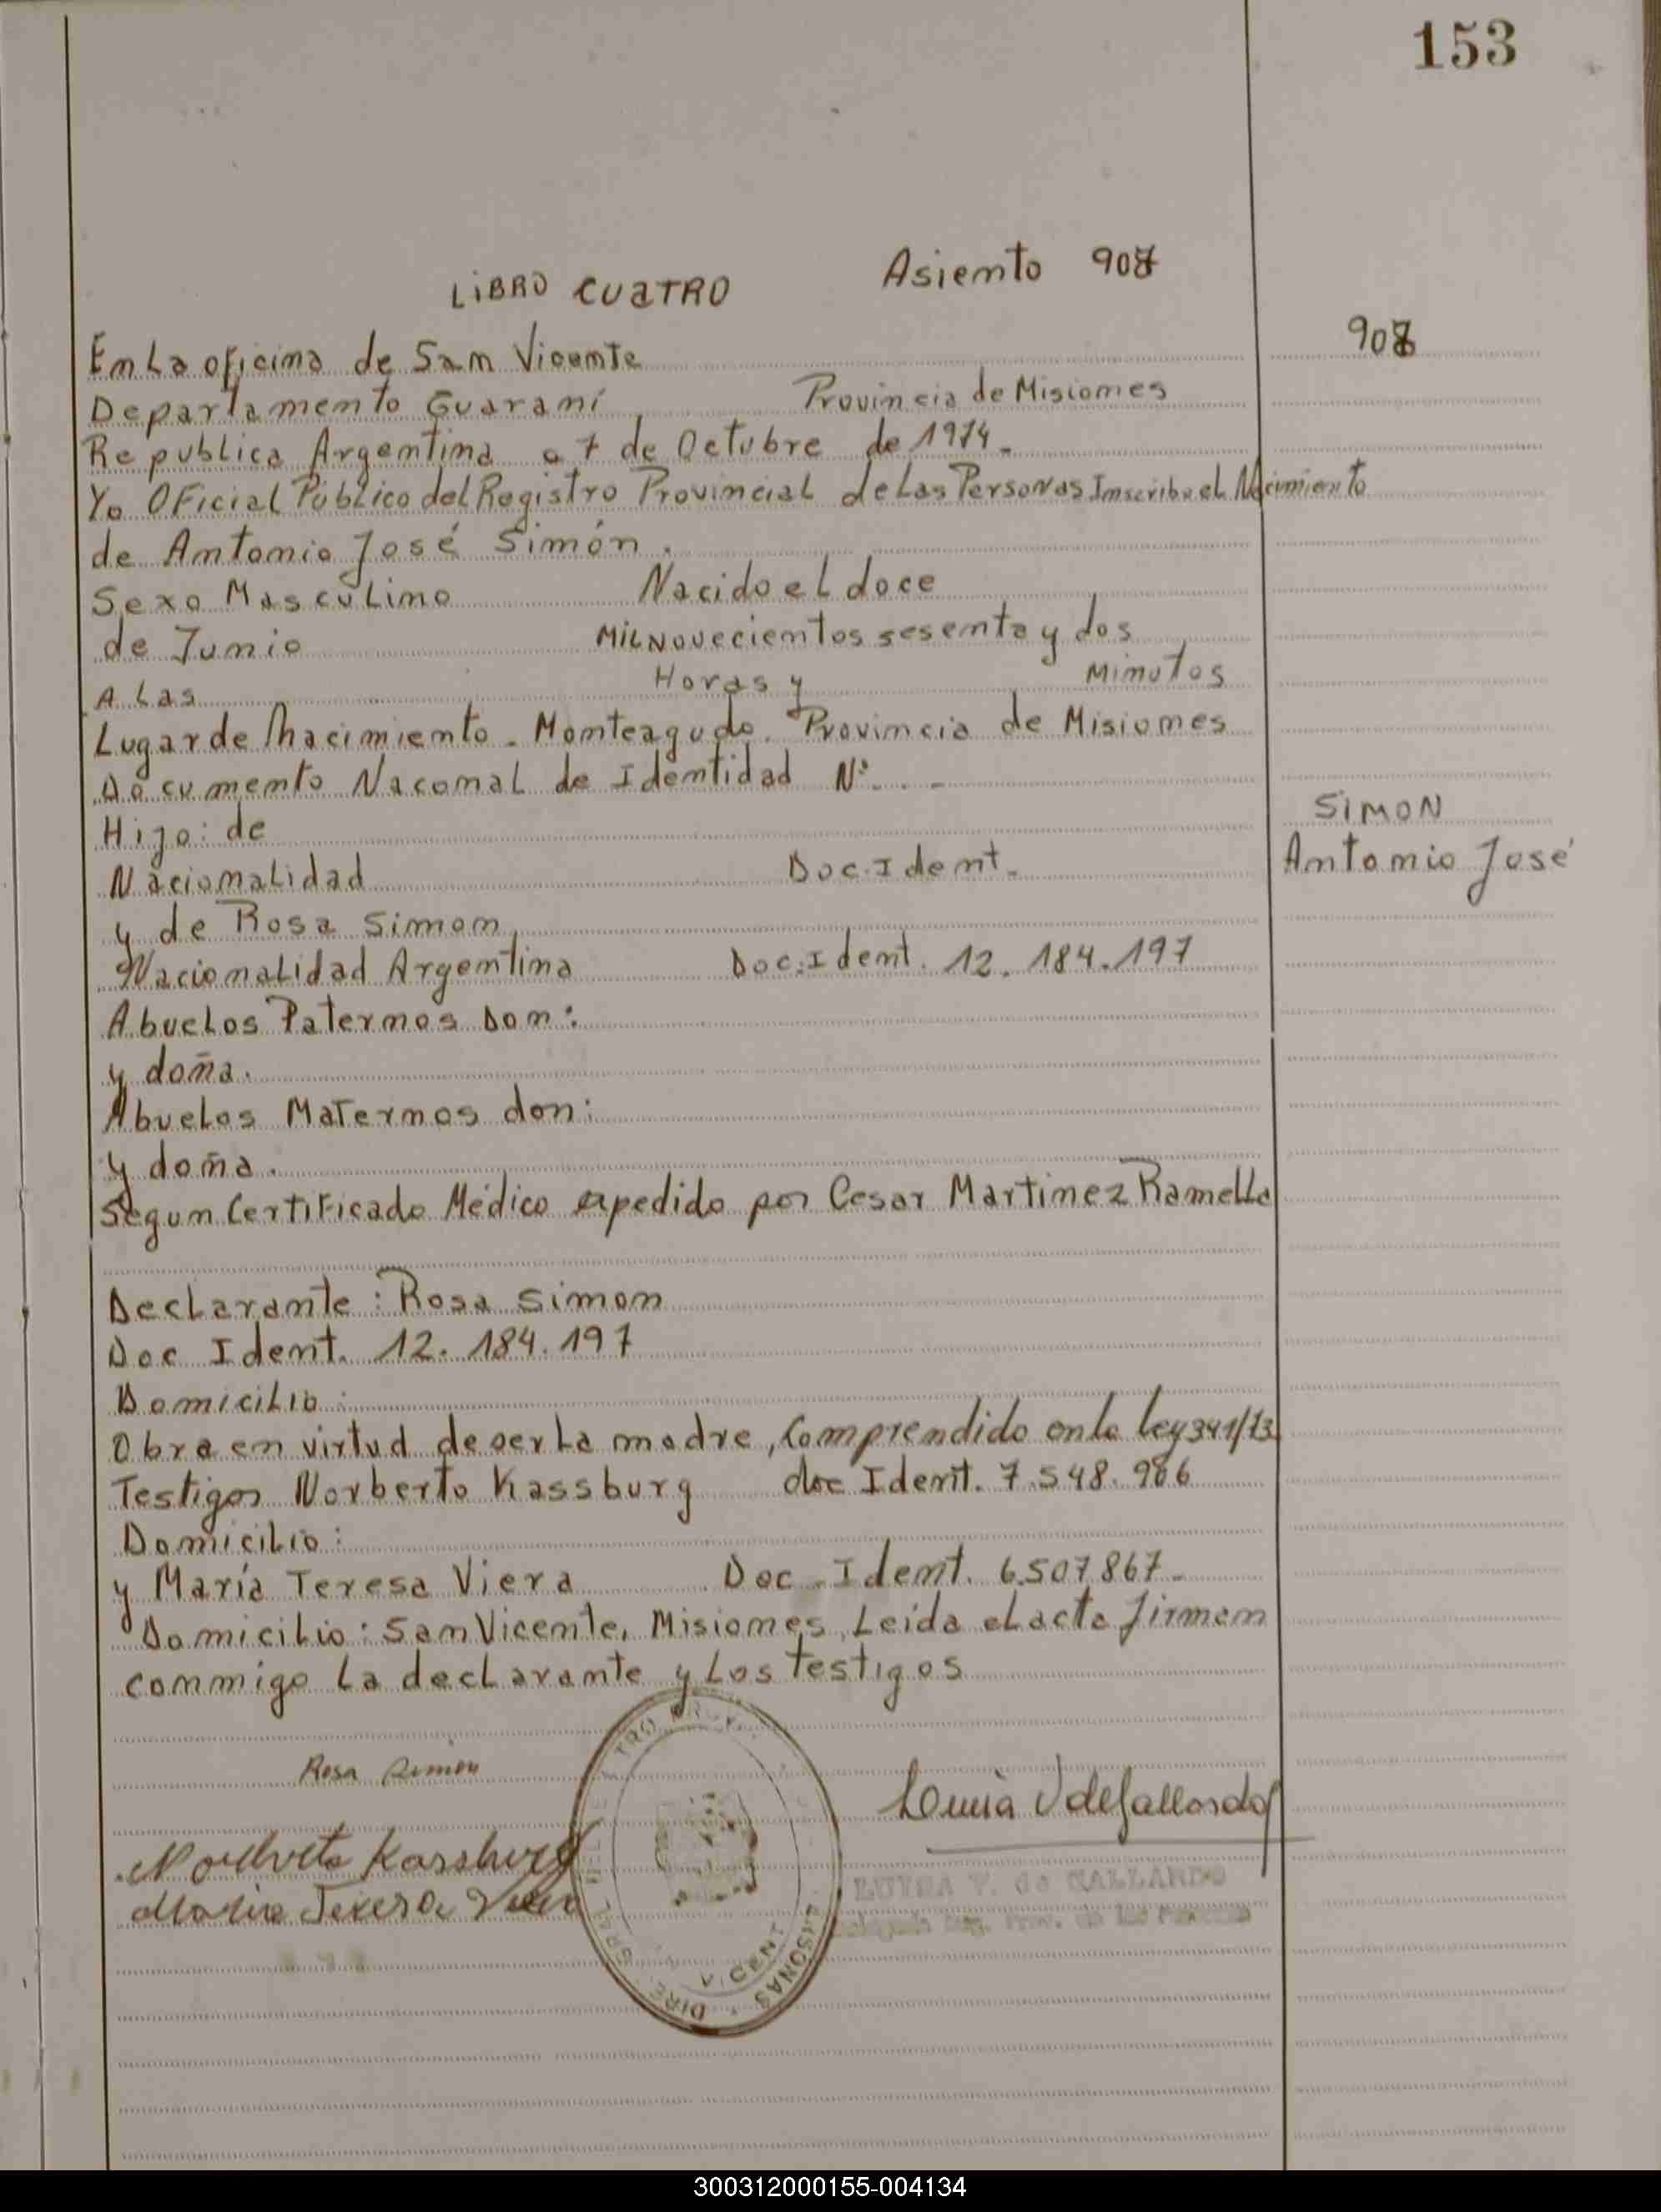 153
LIBRO CUATRO Asiento 908
908
En La oficina de San Vicente
Departamento Guaraní Provincia de Misiones
Republica Argentina a 7 de Octubre de 1974.
Yo Oficial Público del Registro Provincial de Las Personas Inscribo el Nacimiento
de Antonio José Simón.
Sexo Masculino Nacido el doce
de Junio Mil Novecientos sesenta y dos
A Las Horas y Minutos
Lugar de Nacimiento. Monteagudo. Provincia de Misiones
Documento Naconal de Identidad Nº . . -
Hijo: de
SIMON
Nacionalidad Doc. Ident.
Antonio José
y de Rosa Simon
Nacionalidad Argentina Doc. Ident. 12.184.197
Abuelos Paternos Don:
y doña.
Abuelos Maternos don:
y doña.
Segun Certificado Médico expedido por Cesar Martinez Ramella
Declarante: Rosa Simon
Doc Ident. 12.184.197
Domicilio:
Obra en virtud de ser La madre, Comprendido en la Ley 341/73
Testigos Norberto Kassburg doc Ident. 7.548.966
Domicilio:
y María Teresa Viera Doc. Ident. 6.507.867.
Domicilio: San Vicente, Misiones, Leída el acta firman
conmigo La declarante y Los testigos
Rosa Simon
Luisa V de Gallardo
Norberto Kassburg
LUISA V. de GALLARDO
Maria Teresa Viera
Reg. Prov. de las Personas
300312000155-004134